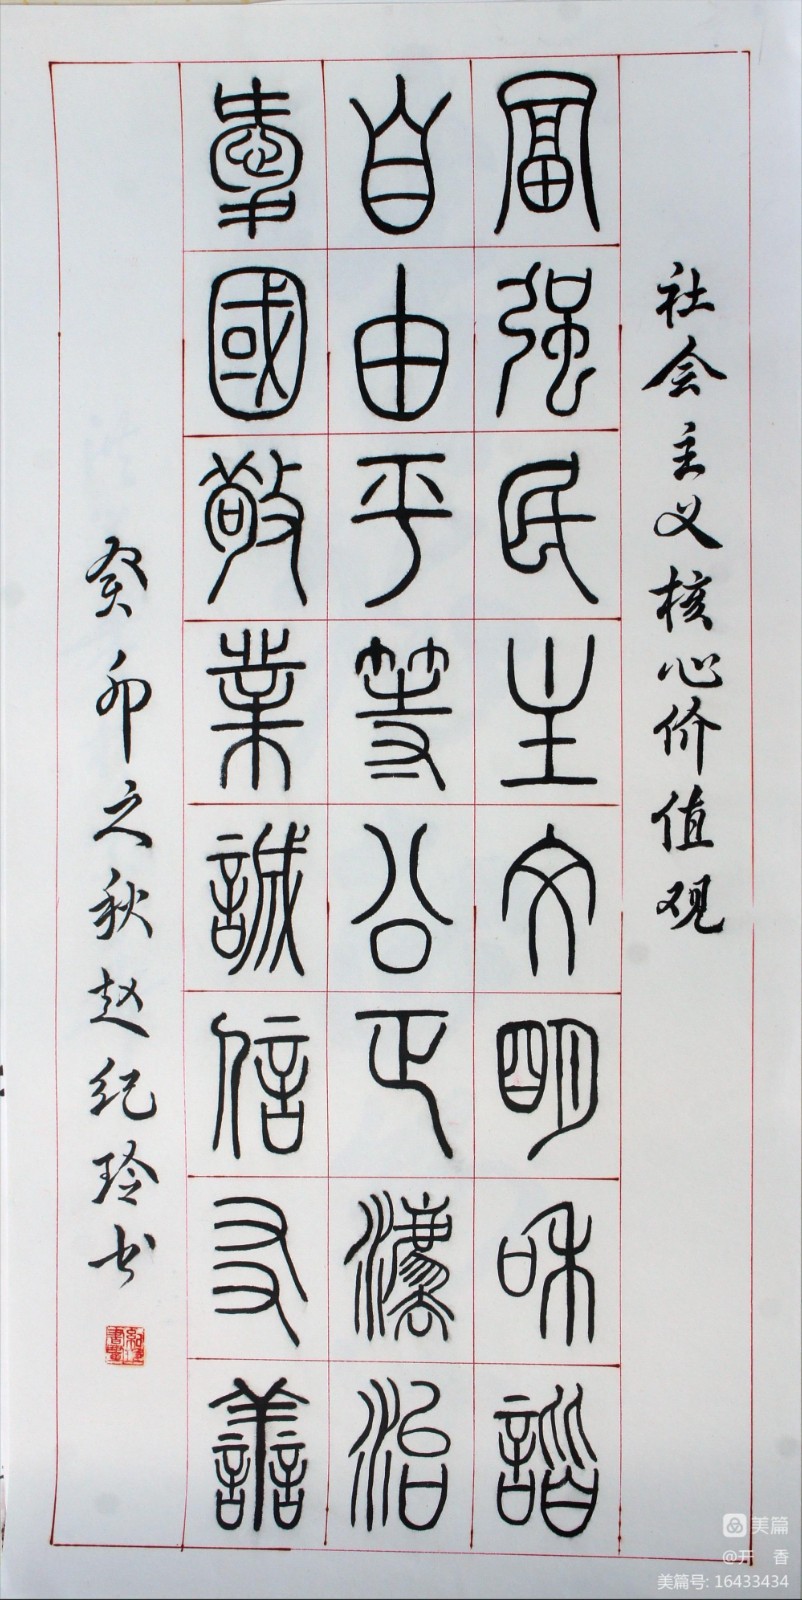 社会主义核心价值观
富强民主文明和谐
自由平等公正灋治
爱国敬业诚信友善
癸卯之秋赵纪玲书
美篇
@开 香
美篇号: 16433434